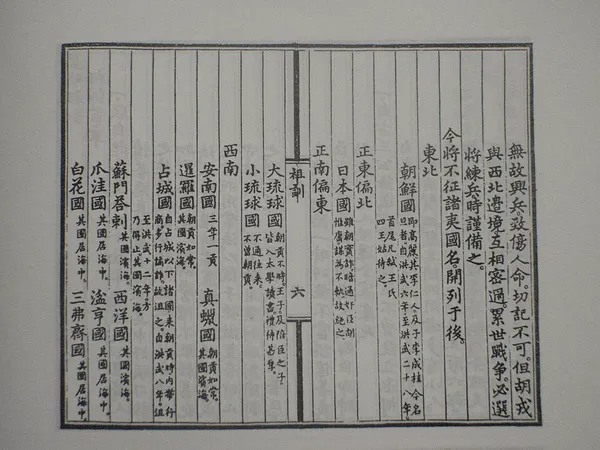 無故興兵、致傷人命。切記不可。但胡戎
與西北邊境互相密邇、累世戰爭。必選
將練兵時謹備之。
今將不征諸夷國名開列于後。
東北
朝鮮國
即高麗其李仁人及子李成桂今名
旦者自洪武六年至洪武二十八年
首尾凡弒王氏
四王姑待之。
正東偏北
日本國
雖朝貢詐暗通奸臣胡
惟庸謀為不軌故絕之
正南偏東
祖訓
六
大琉球國
朝貢不時。王子及陪臣之子、
皆入太學讀書、禮待甚厚。
小琉球國
不通往來。
不曾朝貢。
西南
安南國 三年一貢 真蠟國
朝貢如常。
其國濱海。
暹羅國
朝貢如常。
其國濱海。
占城國
自占城以下諸國來朝貢時內帶行
商多行譎詐故沮之。自洪武八年。沮
至洪武十二年。方
乃得止其國濱海。
蘇門荅剌 其國濱海。 西洋國 其國濱海。
爪洼國 其國居海中。 湓亨國 其國居海中。
白花國 其國居海中。 三弗齊國 其國居海中。